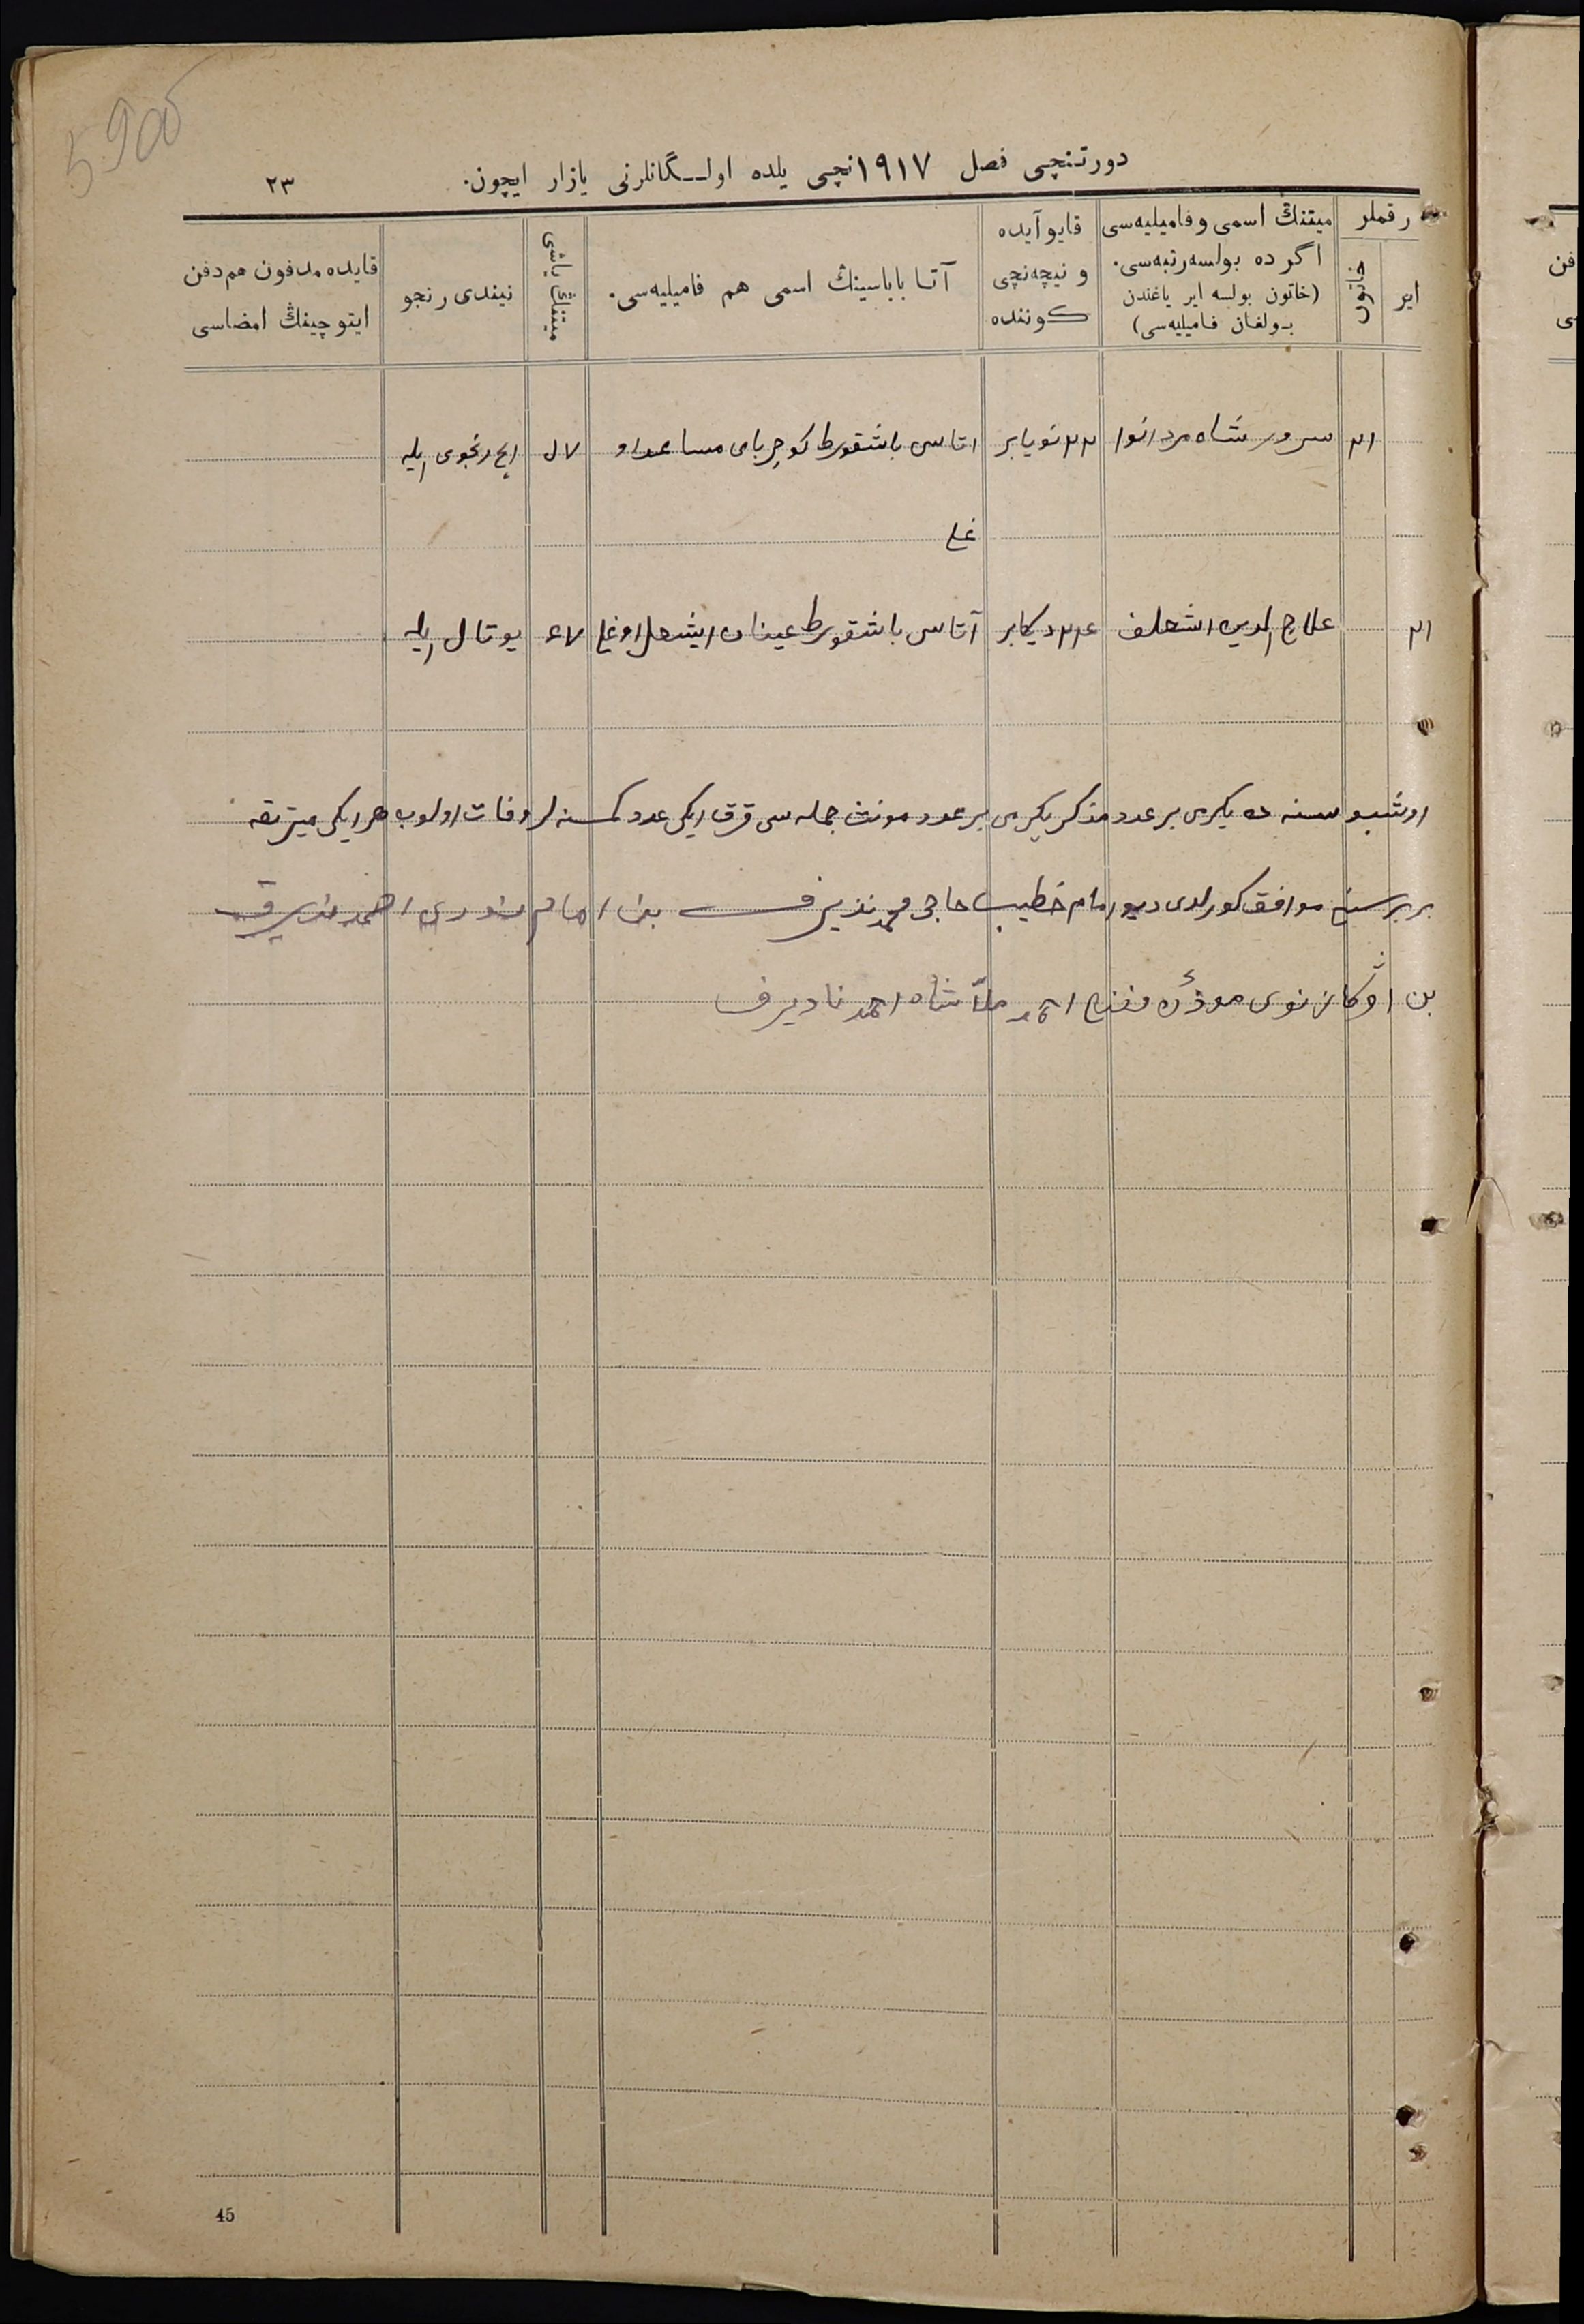 5900
دورتنچی فصل ١٩١٧نچی یلده اولـــگانلرنی یازار ایچون.
٢٣
رقملر
ایر
خاتون
میتنڭ اسمی و فامیلیه‌سی
اگر ده بولسه رتبه‌سی.
(خاتون بولسه ایر یاغندن
بـولغان فـامیلیه‌سی)
قایو آیده
و نیچه‌نچی
کـوننده
آتـا باباسینڭ اسمی هم فامیلیه‌سی.
میتنڭ یاشی
نیندی رنجو
قایده مدفون هم دفن
ایتوچینڭ امضاسی
٢١ سرور شاه مردانوا ٢٢ نویابر اتاسی باشقورط کوچربای او ٧ل ایچ رنجوی ایله
غلی
٢١ علاج الدین ٢٤ دیکابر آتاسی باشقورط اوغلی ٦٧ یوتال ایله
اوشبو سنه ده یکرمی بر عدد مذکر یکرمی بر عدد مونث جمله سی قرق ایکی عدد کمسنه لر وفات اولوب هر ایکی میتریقه
بر برسینه موافق کورلدی دیو امام خطیب حاجی محمد نذیرف بن امام
بن موذن ملا شاه احمد نادیرف
45